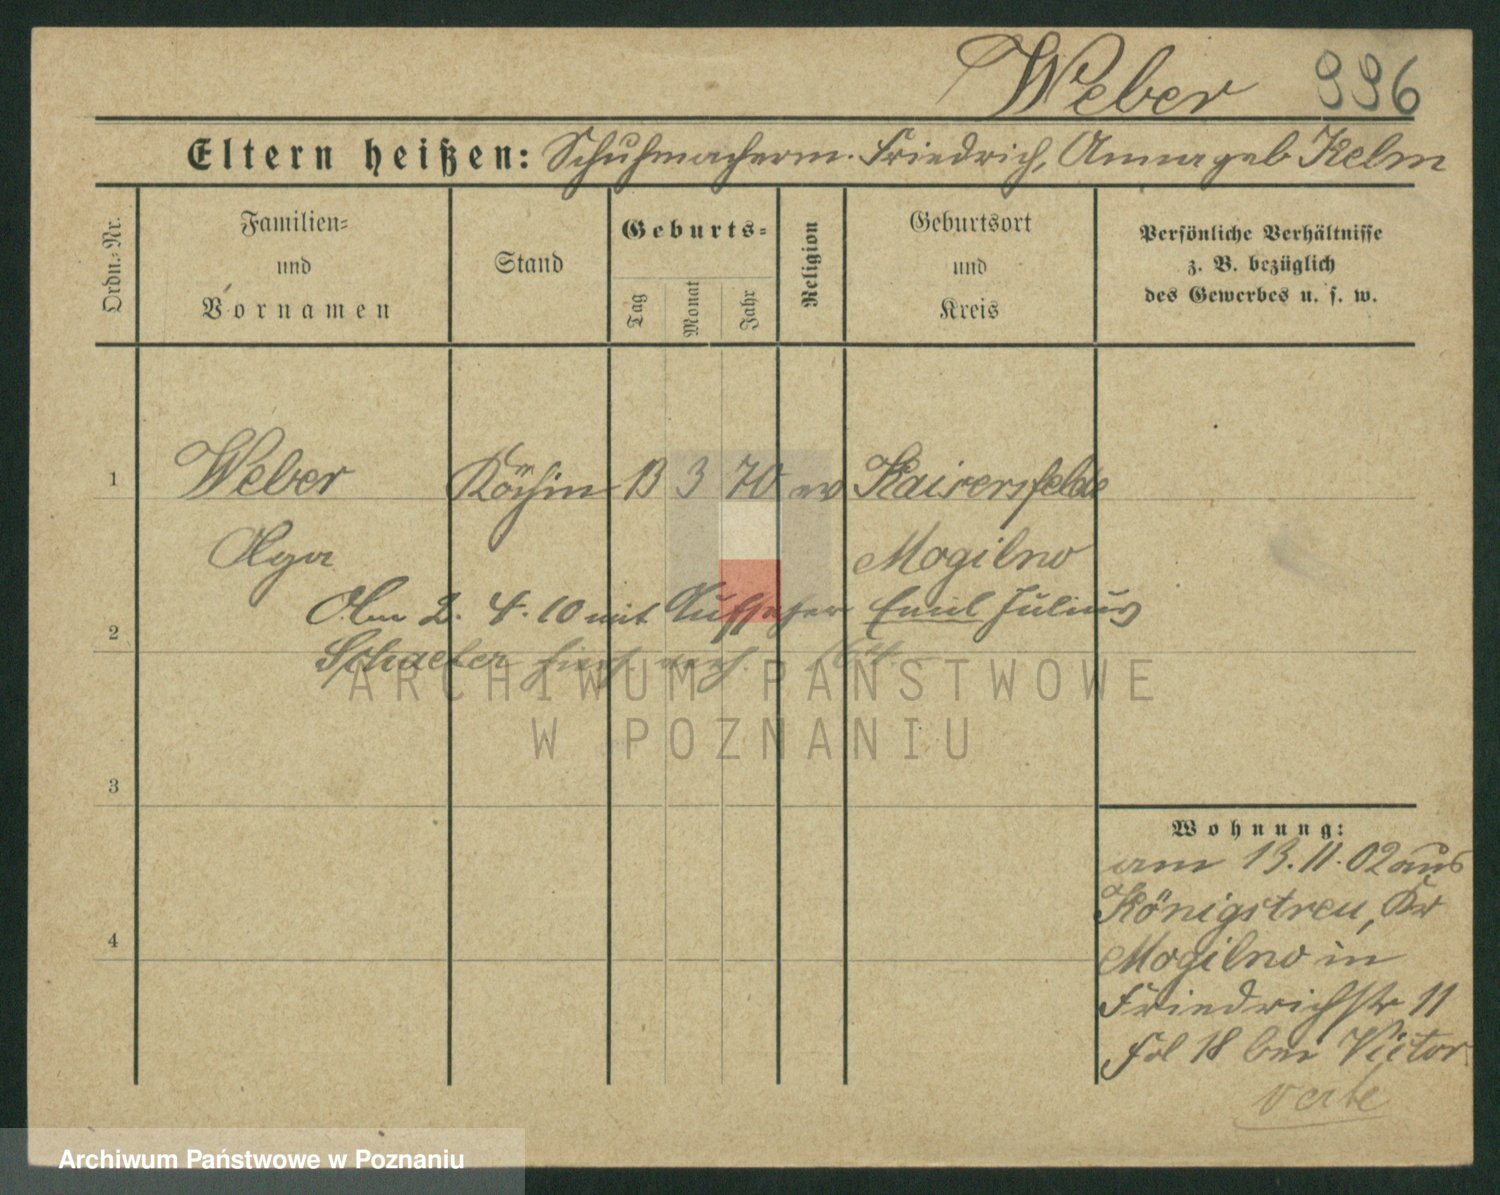 Weber 996
Eltern heißen: Schuhmacherm. Friedrich, Anna geb Kelm
Ordn.-Nr.
Familien-
und
Vornamen
Stand
Geburts-
Tag
Monat
Jahr
Religion
Geburtsort
und
Kreis
Persönliche Verhältnisse
z. B. bezüglich
des Gewerbes u. s. w.
1 Weber Köchin 13 3 70 ev Kaisersfelde
Olga Mogilno
Am 2. 4. 10 mit Aufseher Emil Julius
2
Schaefer hier verh. 64.
ARCHIWUM PAŃSTWOWE
W POZNANIU
3
Wohnung:
am 13.11.02 aus
Königstreu, Kr
4
Mogilno in
Friedrichstr 11
Fol 18 bei Victor
verte
Archiwum Państwowe w Poznaniu